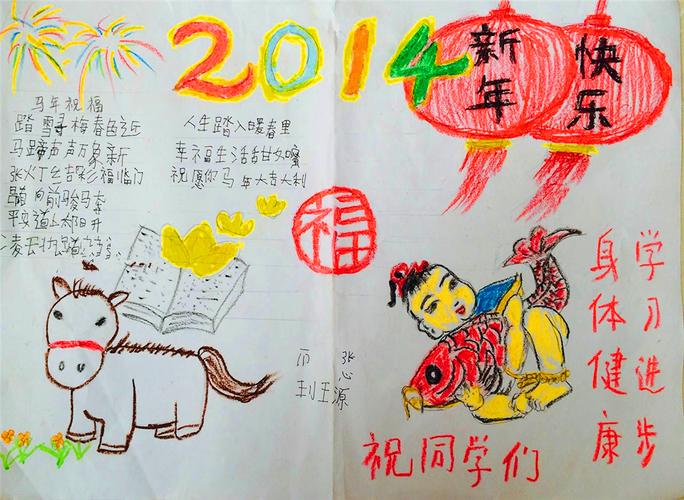 2014
新年
快乐
马年祝福
踏雪寻梅春已近
马蹄声声万象新
张灯结彩福临门
向前骏马奔
平安道上太阳升
凌云壮
人生踏入暖春里
幸福生活甜如蜜
祝愿你马年大吉大利
福
祝同学们
学习进步
身体健康